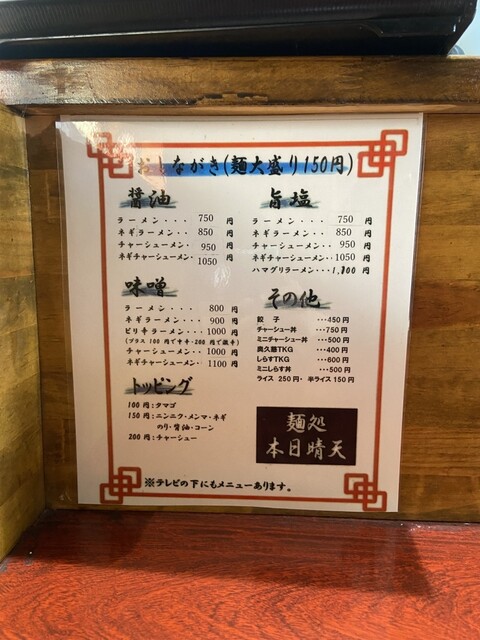 おしながき(麺大盛り150円)
醤油
ラーメン・・・ 750 円
ネギラーメン・・ 850 円
チャーシューメン・ 950 円
ネギチャーシューメン・ 1050 円
旨塩
ラーメン・・・ 750 円
ネギラーメン・・ 850 円
チャーシューメン・・ 950 円
ネギチャーシューメン・・ 1050 円
ハマグリラーメン・・・1,300 円
味噌
ラーメン・・・ 800 円
ネギラーメン・・・ 900 円
ピリ辛ラーメン・・ 1000 円
(プラス 100 円で中辛・200 円で激辛)
チャーシューメン・・ 1000 円
ネギチャーシューメン・ 1100 円
その他
餃 子 ・・・450円
チャーシュー丼 ・・・750円
ミニチャーシュー丼 ・・・500円
奥久慈TKG ・・・400円
しらすTKG ・・・600円
ミニしらす丼 ・・・500円
ライス 250円・半ライス 150円
トッピング
100 円:タマゴ
150 円:ニンニク・メンマ・ネギ
のり・醤油・コーン
200 円:チャーシュー
麺処
本日晴天
※テレビの下にもメニューあります。